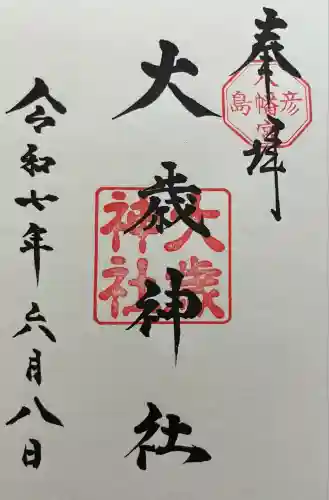 奉拝
八幡宮
彦島
大歳神社
大歳神社
令和七年六月八日